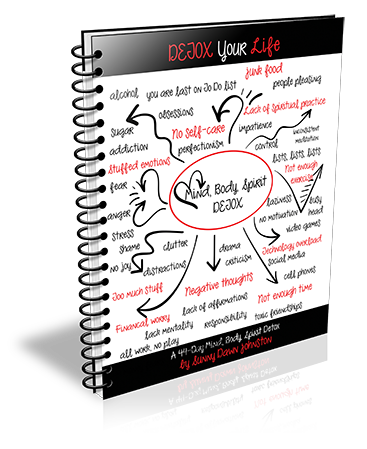 DETOX Your Life
junk food
alcohol
you are last on To Do list
people pleasing
obsessions
Lack of spiritual practice
sugar
No self-care
impatience
inconsistent
meditation
addiction
perfectionism
control
stuffed emotions
lists, lists, lists
Not enough
exercise
fear
Mind, Body, Spirit
DETOX
anger
laziness
busy
head
stress
no motivation
shame
clutter
drama
video games
criticism
Technology overload
no joy
distractions
social media
Too much stuff
Negative thoughts
cell phones
lack of affirmations
Not enough time
Financial worry
lack mentality
Responsibility
toxic friendships
all work, no play
A 44-Day Mind, Body Spirit Detox
by Sunny Dawn Johnston